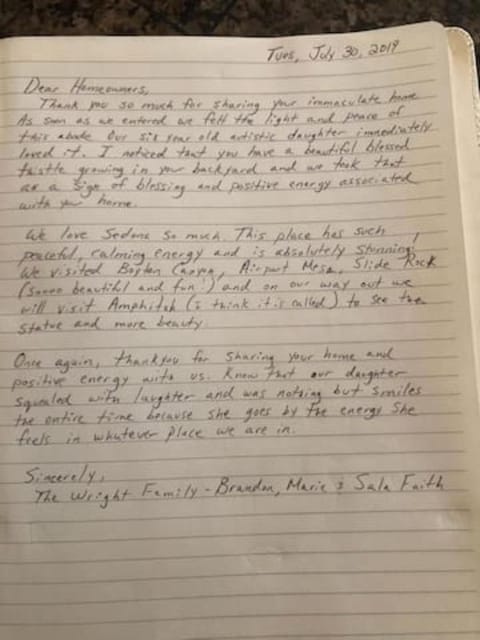 Tues, July 30, 2019
Dear Homeowners,
Thank you so much for sharing your immaculate home.
As soon as we entered we felt the light and peace of
this abode. Our six year old artistic daughter immediately
loved it. I noticed that you have a beautiful blessed
thistle growing in your backyard and we took that
as a sign of blessing and positive energy associated
with your home.
We love Sedona so much. This place has such
peaceful, calming energy and is absolutely stunning!
We visited Boyton Canyon, Airport Mesa, Slide Rock
(soooo beautiful and fun!) and on our way out we
will visit Amphitah (i think it is called) to see the
statue and more beauty.
Once again, thank you for sharing your home and
positive energy with us. Know that our daughter
squealed with laughter and was nothing but smiles
the entire time because she goes by the energy she
feels in whatever place we are in.
Sincerely,
The Wright Family - Brandon, Marie & Sala Faith